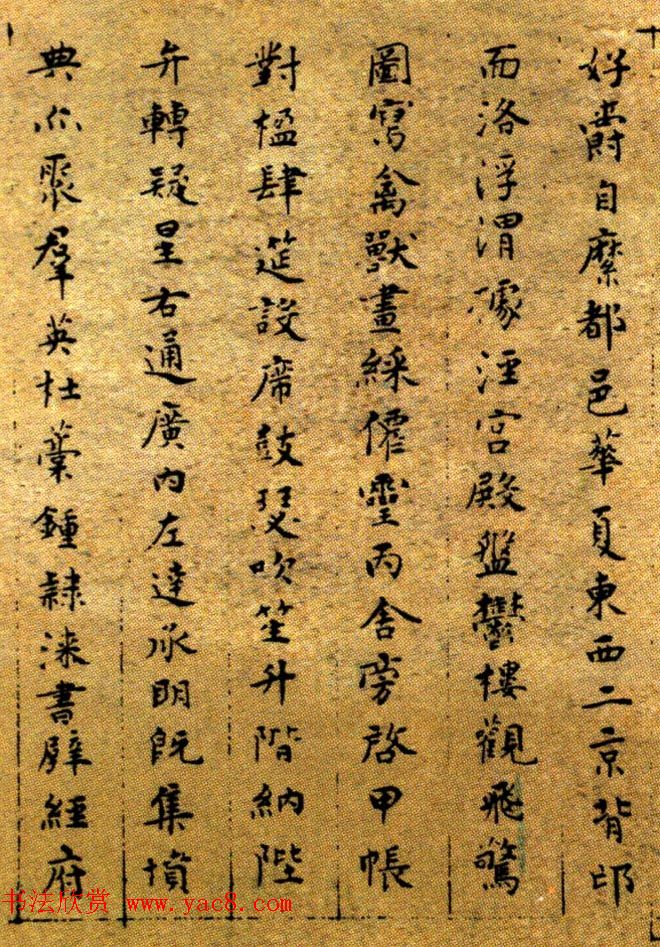 好爵自縻都邑華夏東西二京背邙
面洛浮渭據涇宮殿盤欝樓觀飛驚
圖寫禽獸畫綵僊靈丙舍旁啓甲帳
對楹肆筵設席鼓瑟吹笙升階納陛
弁轉疑星右通廣內左達承明既集墳
典亦聚羣英杜藁鍾隸漆書壁經府
书法欣赏 www.yac8.com